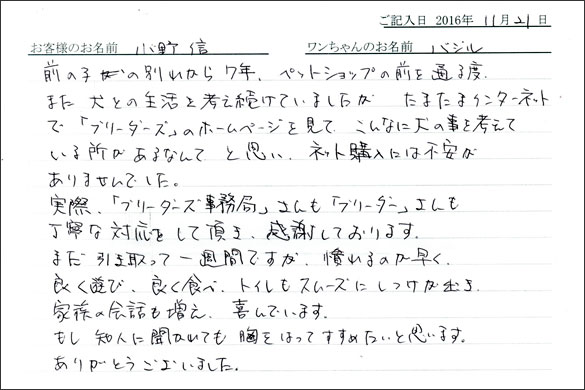 ご記入日 2016年 11月21日
お客様のお名前 小野 信 ワンちゃんのお名前 バジル
前の子との別れから7年、ペットショップの前を通る度、
また犬との生活を考え続けていましたが たまたまインターネット
で「ブリーダーズ」のホームページを見て、こんなに犬の事を考えて
いる所があるなんて と思い、ネット購入には不安が
ありませんでした。
実際、「ブリーダーズ事務局」さんも「ブリーダー」さんも
丁寧な対応をして頂き、感謝しております。
まだ引き取って一週間ですが、慣れるのが早く、
良く遊び、良く食べ、トイレもスムーズにしつけが出き
家族の会話も増え、喜んでいます。
もし知人に聞かれても胸をはってすすめたいと思います。
ありがとうございました。